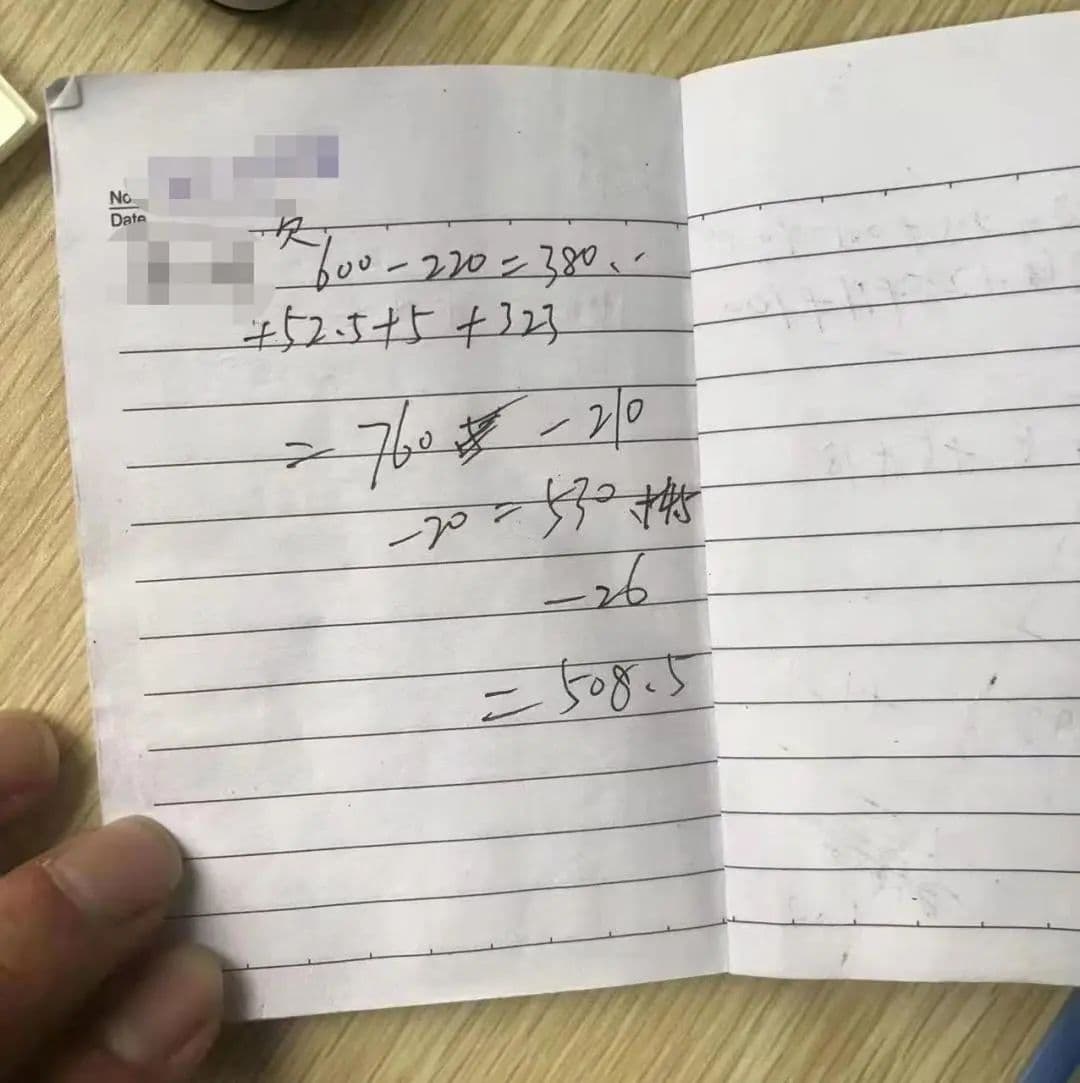 No.
Date
欠
600-220=380.
+52.5+5+323
=760 -210
-20=530+4.5
-26
=508.5